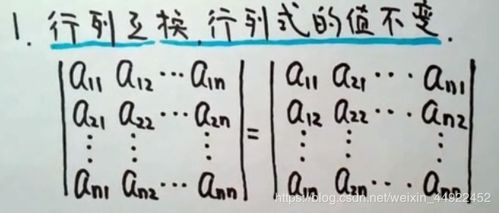 1. 行列互换,行列式的值不变.
|a11 a12 ⋯ a1n| |a11 a21 ⋯ an1|
|a21 a22 ⋯ a2n| = |a12 a22 ⋯ an2|
|⋮ ⋮ ⋮| |⋮ ⋮ ⋮|
|an1 an2 ⋯ ann| |a1n a2n ⋯ ann|
https://blog.csdn.net/weixin_44922452